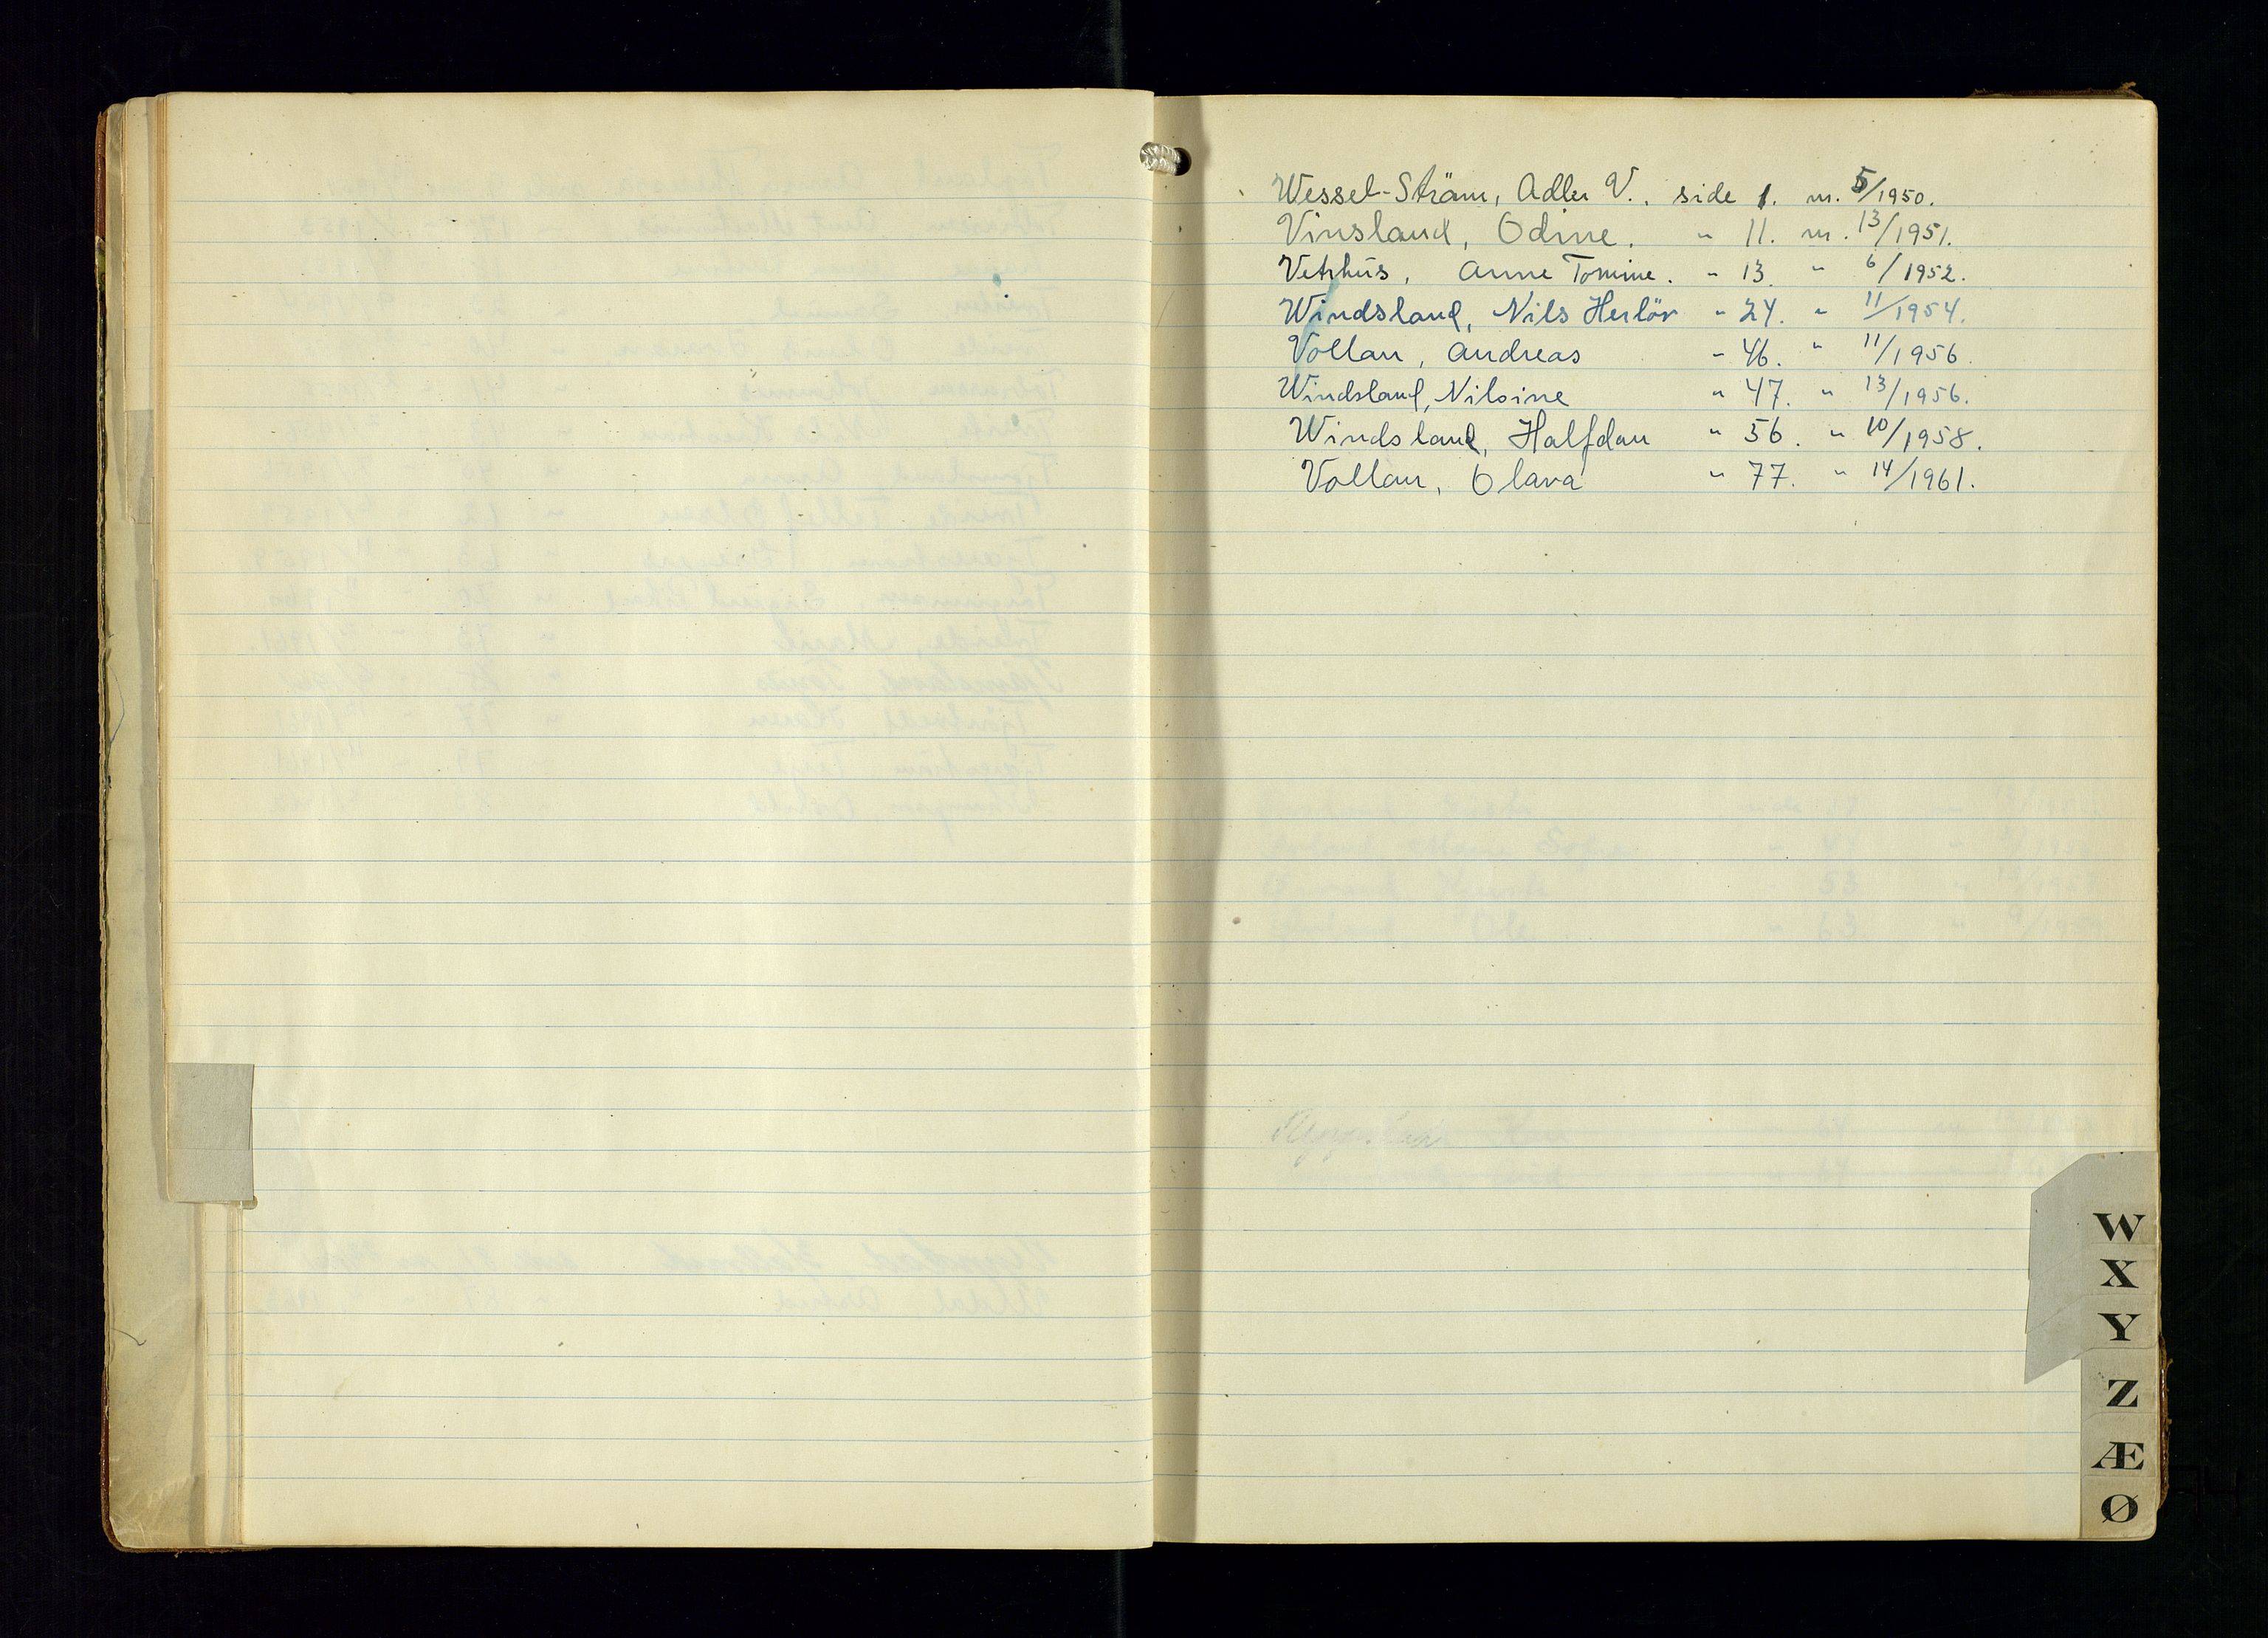 Wessel-Strøm, Adler V., side 1. nr. 5/1950.
Vinsland, Odine. " 11. nr. 13/1951.
Vetrhus, Anne Tomine. " 13. " 6/1952.
Windsland, Nils Herlöv " 24. " 11/1954.
Vollan, Andreas " 46. " 11/1956.
Windsland, Nilsine " 47. " 13/1956.
Windsland, Halfdan " 56. " 10/1958.
Vollan, Olava " 77. " 14/1961.
W
X
Y
Z
Æ
Ø